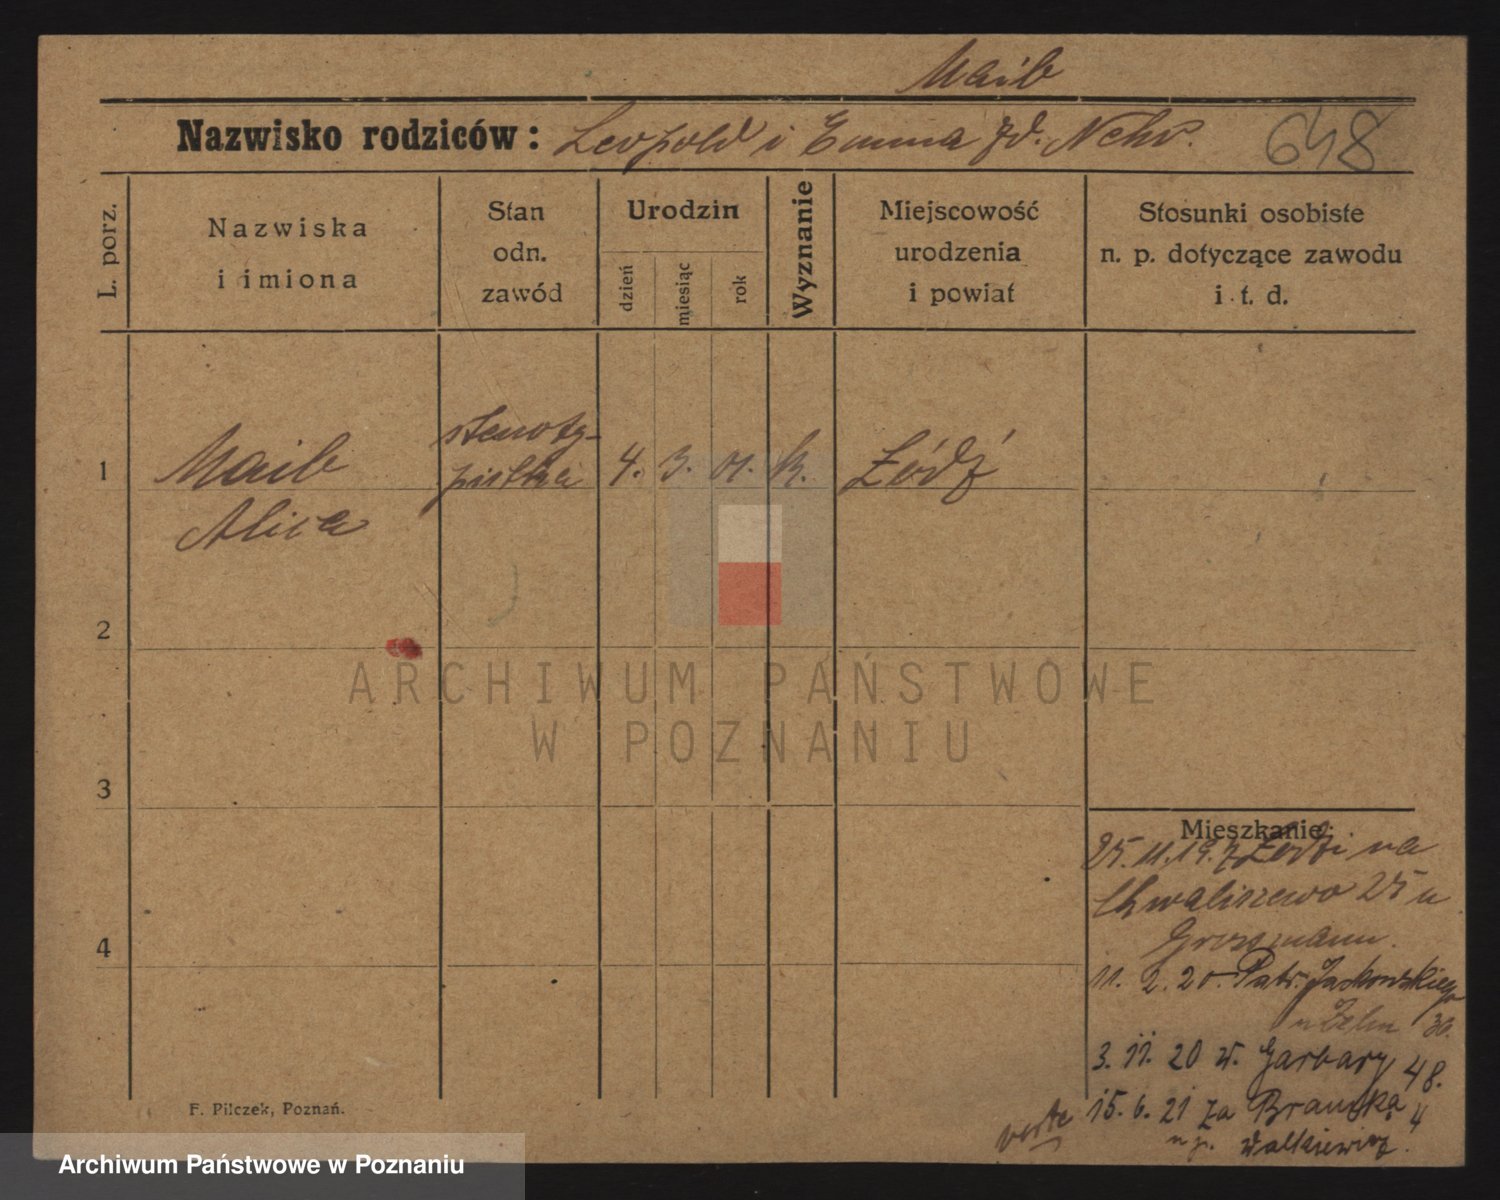 Maib
Nazwisko rodziców: Leopold i Emma zd. Nehr. 648
L. porz.
Nazwiska
i imiona
Stan
odn.
zawód
Urodzin
dzień
miesiąc
rok
Wyznanie
Miejscowość
urodzenia
i powiat
Stosunki osobiste
n. p. dotyczące zawodu
i t. d.
1
Maib
Alica
stenoty-
pistka
4. 3. 01. k. Łódź
2
3
4
ARCHIWUM PAŃSTWOWE
W POZNANIU
Mieszkanie:
25. 11. 19. z Łodzi na
Chwaliszewo 25 u
Grossmann.
11. 2. 20. Patr. Jackowskiego
u 30.
3. 11. 20 W. Garbary 48.
15. 6. 21 Za Bramką 4
u p. Walkiewicz.
F. Pilczek, Poznań.
Archiwum Państwowe w Poznaniu